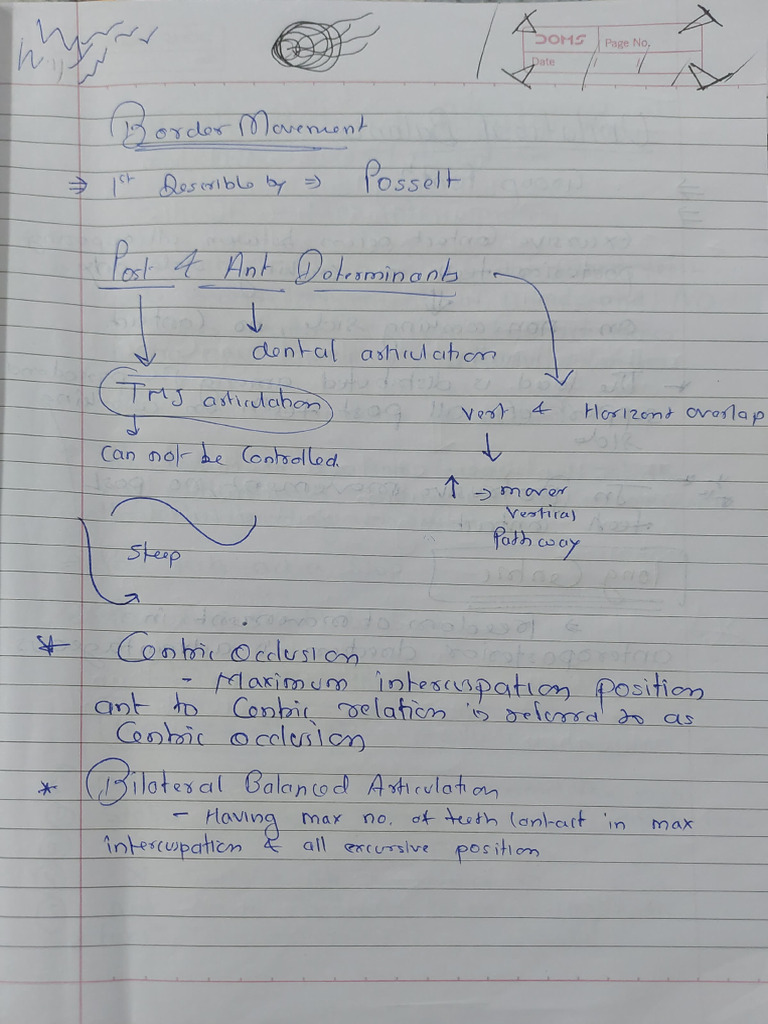 DOMS
Page No.
Date
Border Movement
⇒ 1st Describle by ⇒ Posselt
Post & Ant Determinants
dental articulation
TMJ articulation
Vert & Horizont overlap
can not be Controlled.
↑ → mover
vertical
Pathway
Steep
* Centric Occlusion
- Maximum intercuspation position
ant to Centric relation is referred to as
Centric occlusion
* Bilateral Balanced Articulation
- Having max no. of teeth Contact in max
intercuspation & all excursive position